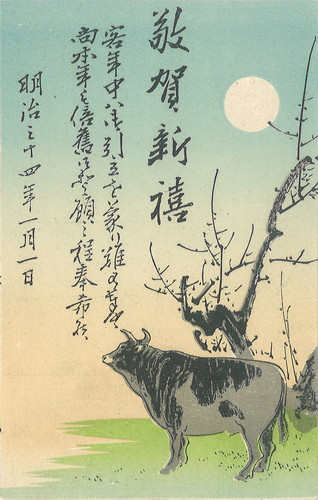 敬賀新禧
客年中ハ御引立を蒙り難有奉
尚本年も倍舊愛顧之程奉希候
明治三十四年一月一日